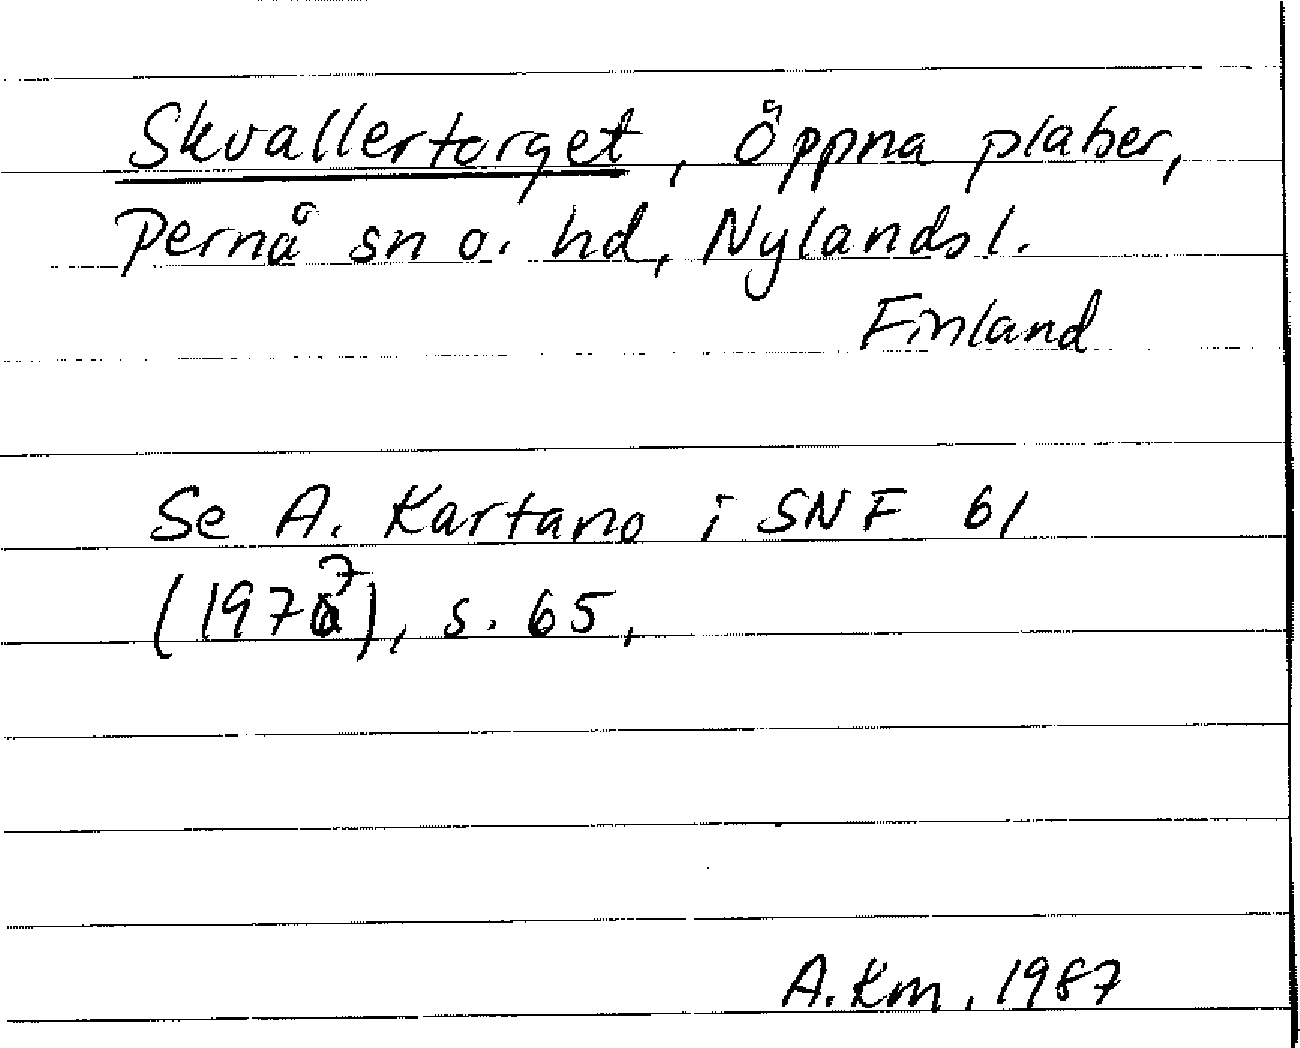 Skvallertorget, Öppna platser,
Pernå sn o. hd, Nylands l.
Finland
Se A. Kartano i SNF 61
(1977), s. 65,
A. Km, 1987